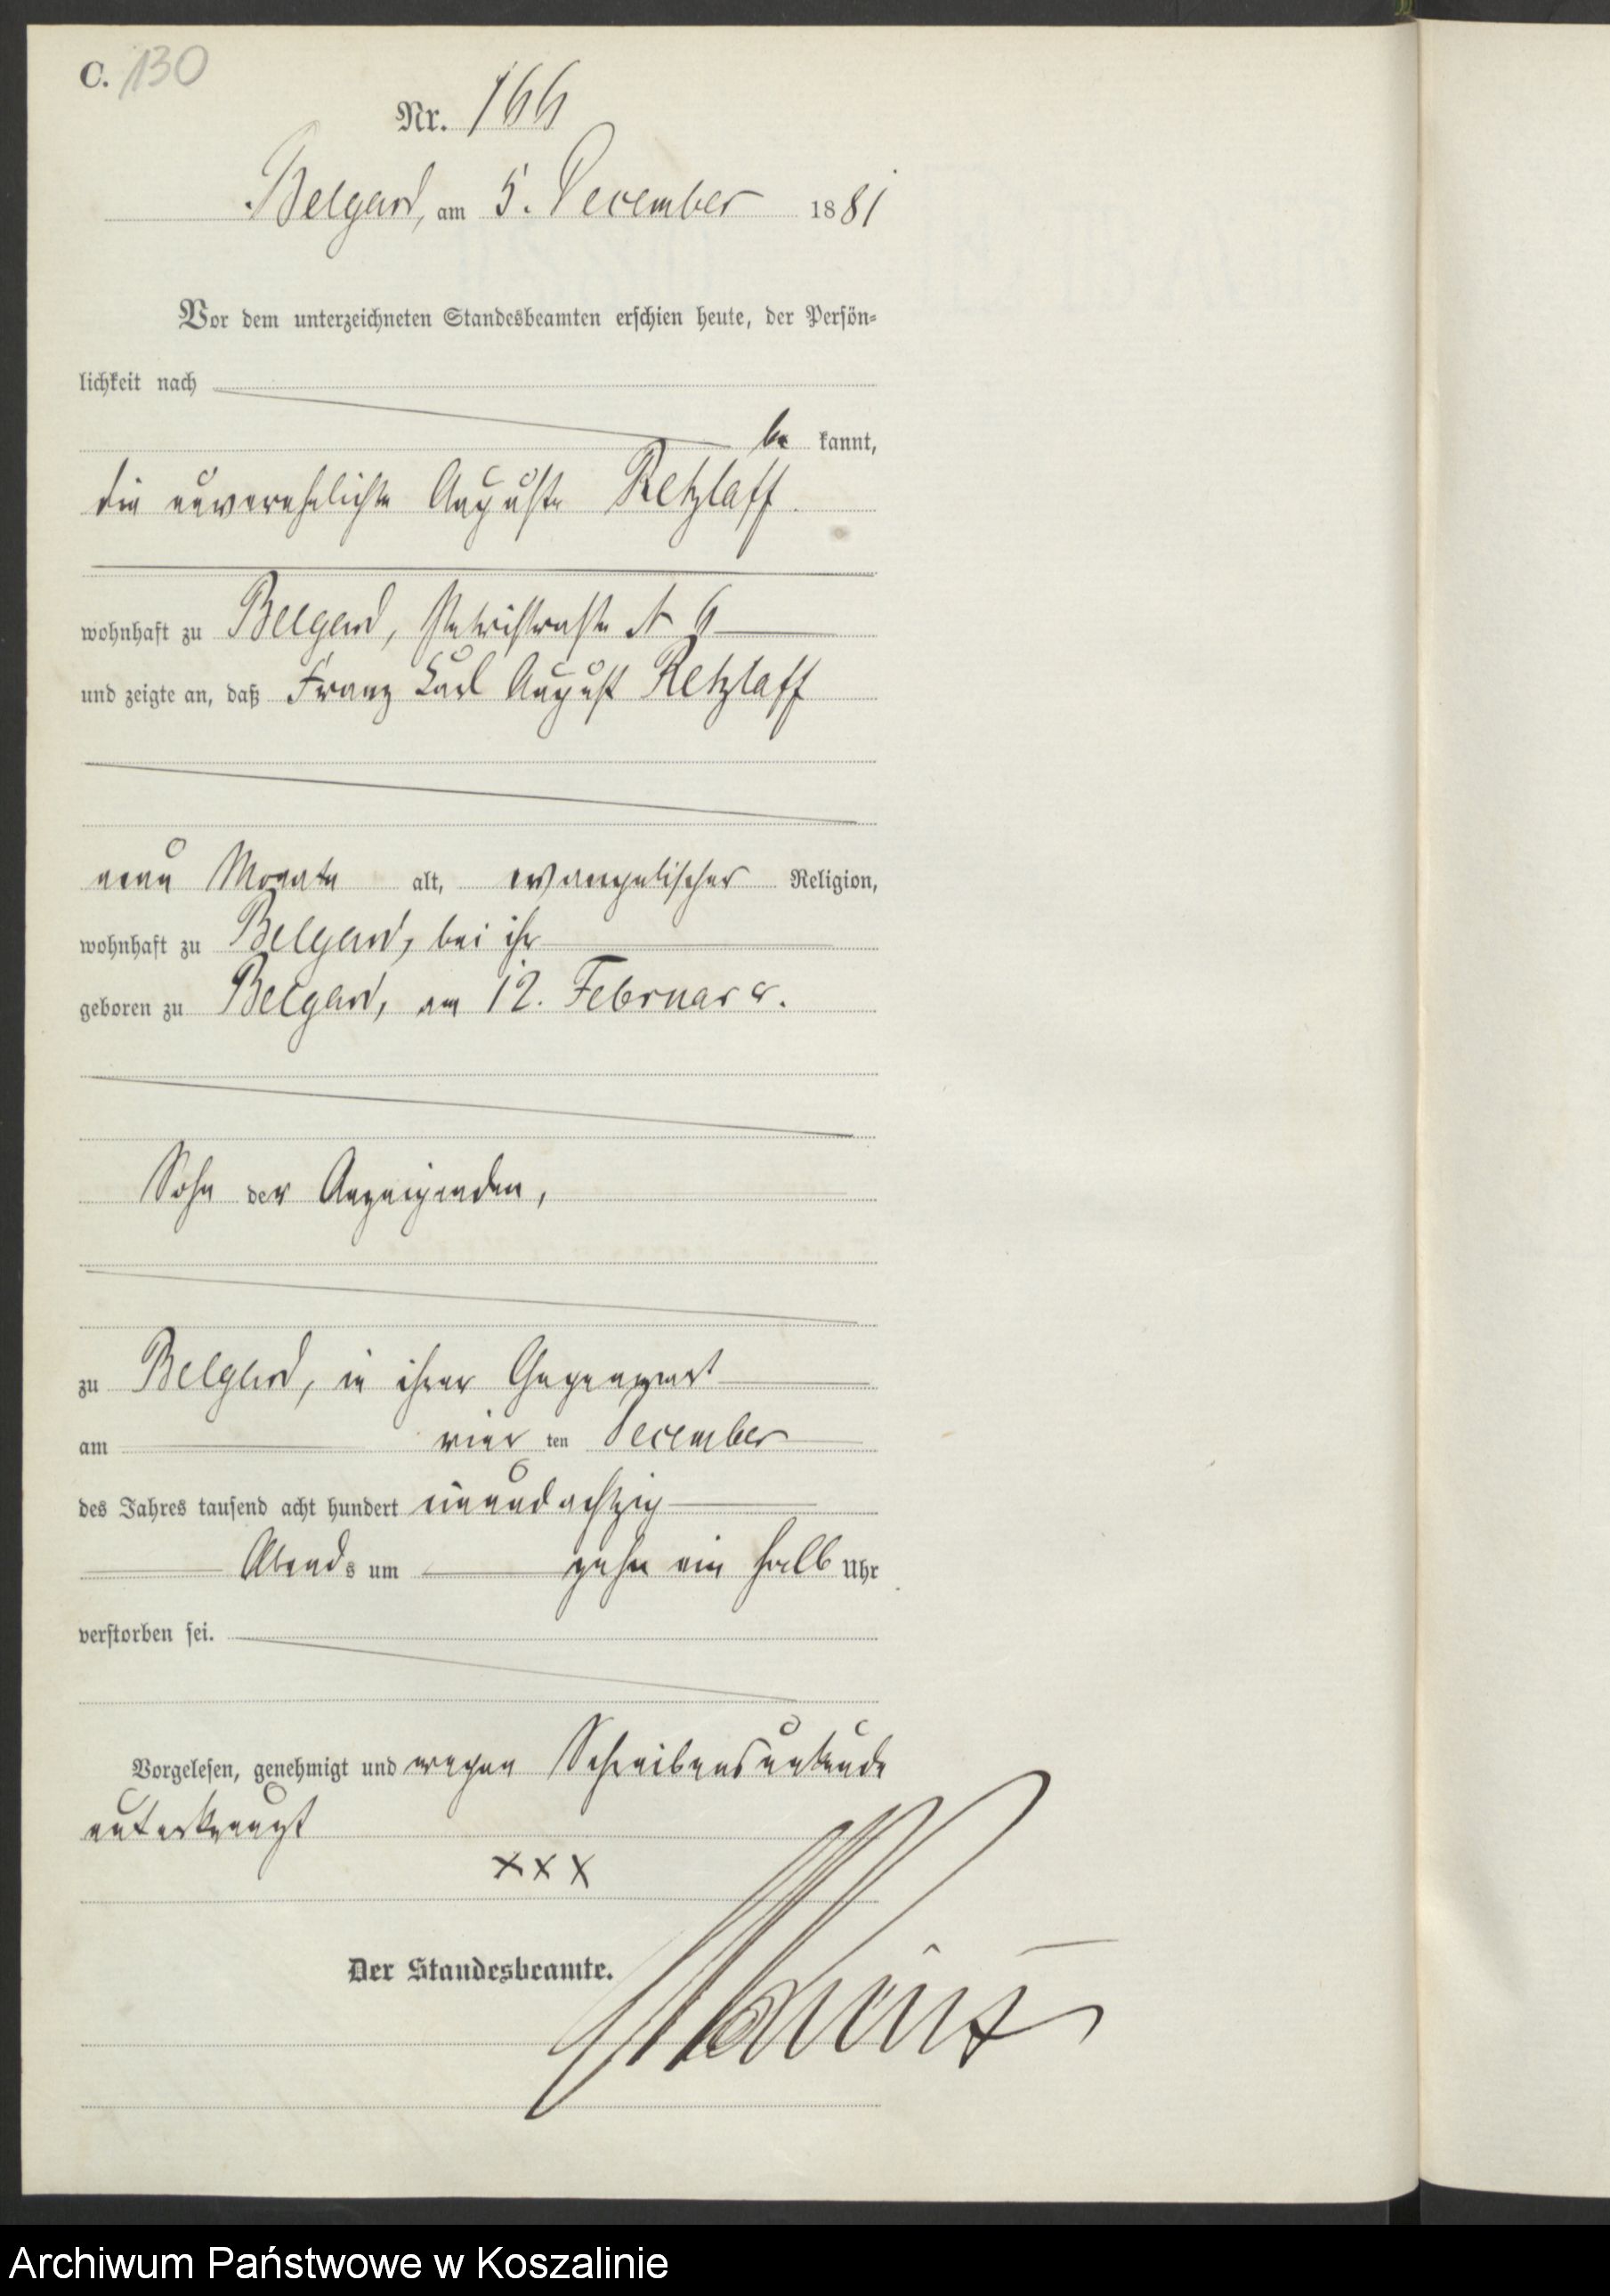 C. 130
Nr. 166
Belgard, am 5. December 1881
Vor dem unterzeichneten Standesbeamten erschien heute, der Persön-
lichkeit nach
be kannt,
die unverehelichte Auguste Retzlaff.
wohnhaft zu Belgard, № 6
und zeigte an, daß Franz Carl August Retzlaff
neun Monate alt, evangelischer Religion,
wohnhaft zu Belgard, bei ihr
geboren zu Belgard, am 12. Februar c.
Sohn der Anzeigenden,
zu Belgard, in ihrer Gegenwart
am vier ten December
des Jahres tausend acht hundert einundachtzig
Abends um zehn ein halb Uhr
verstorben sei.
Vorgelesen, genehmigt und wegen Schreibensunkunde
unterkreuzt
XXX
Der Standesbeamte.
Archiwum Państwowe w Koszalinie